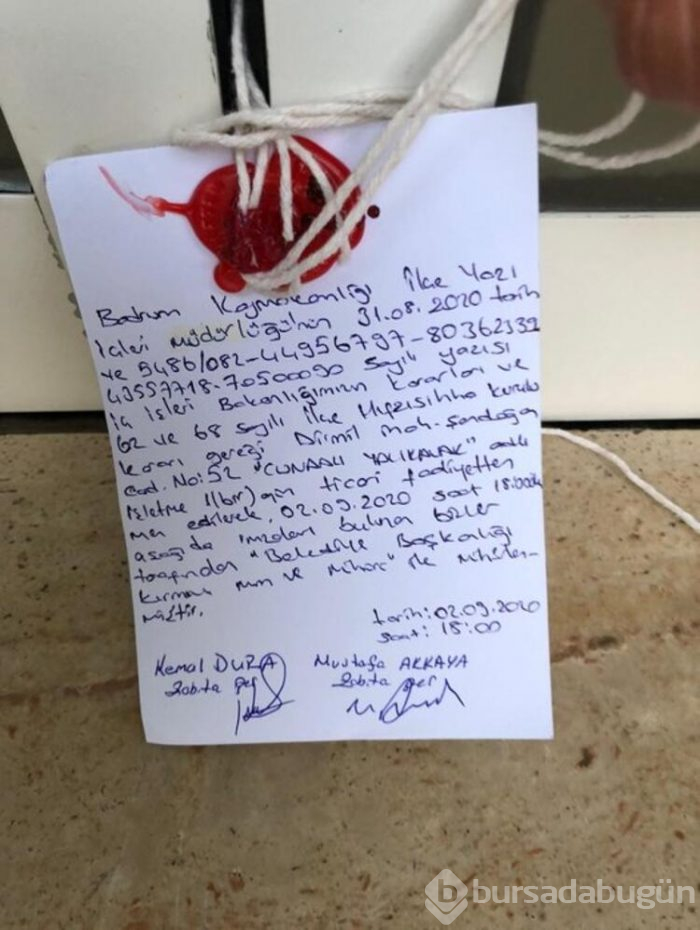 Bodrum Kaymakanlığı İlçe Yazı
işleri müdürlüğü'nün 31.08.2020 tarih
ve 5486/082-44956797-80362339
43557718-70500090 sayılı yazısı
iç işleri Bakanlığımızın kararları ve
62 ve 68 sayılı İlçe Hıfzısıhha kurulu
kararı gereği Dirmil mah. Sandoğan
cad. No:52 "CUNDALI YALIKAVAK" adlı
işletme 1(bir) gün ticari faaliyetten
men edilerek, 02.09.2020 saat 18:00de
aşağıda imzaları bulunan bizler
tarafından "Belediye Başkanlığı
kırmızı mum ve mührü" ile mühürlen-
miştir.
tarih: 02.09.2020
saat: 18:00
Kemal DURA Mustafa AKKAYA
Zabıta per Zabıta per
bursadabugün